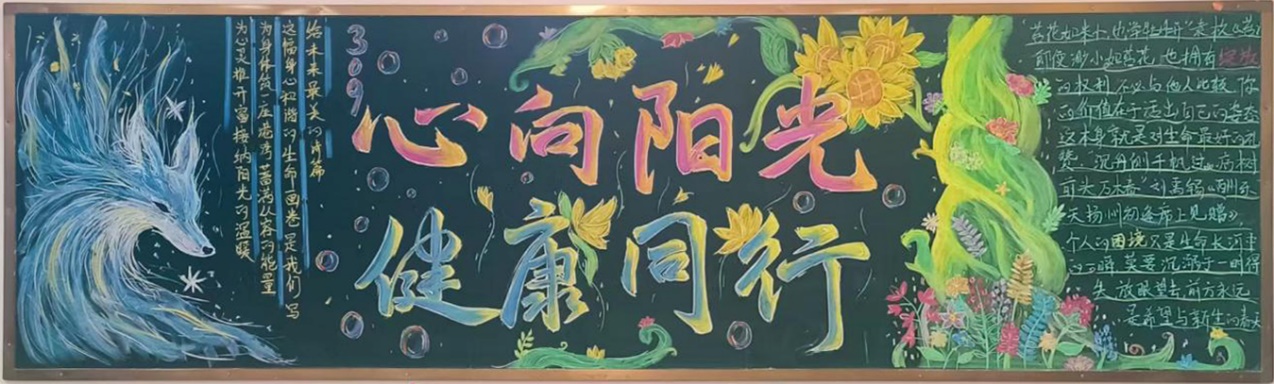 为心灵推开窗接纳阳光的温暖
为身体筑一座蓄满从容的能量
这幅身心和谐的生命画卷是我们写
给未来最美的诗篇
309
心向阳光
健康同行
苔花如米小,也学牡丹开"袁枚《苔》
即使渺小如苔花,也拥有绽放
的权利 不必与他人比较 你
的价值在于活出自己的姿态
这本身就是对生命最好的礼
赞。沉舟侧畔千帆过,病树
前头万木春"刘禹锡《酬乐
天扬州初逢席上见赠》
个人的困境只是生命长河中
的一瞬 莫要沉溺于一时得
失 放眼望去 前方永远
是希望与新生的春天